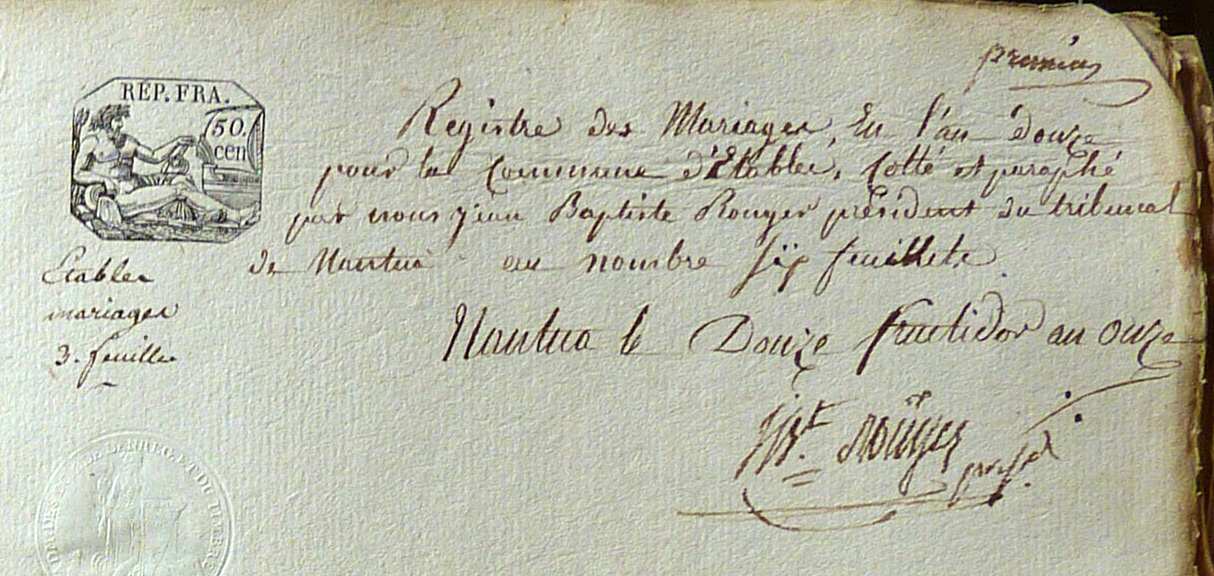 premier
RÉP. FRA.
50.
cen
Registre des Mariages, En l'an douze
pour la Commune d'Etables, Cotté et paraphé
par nous Jean Baptiste Rouger président du tribunal
de Nantua au nombre six feuillets
Etables
mariages
3. feuilles
Nantua le Douze fructidor an onze
JBt. Rouger